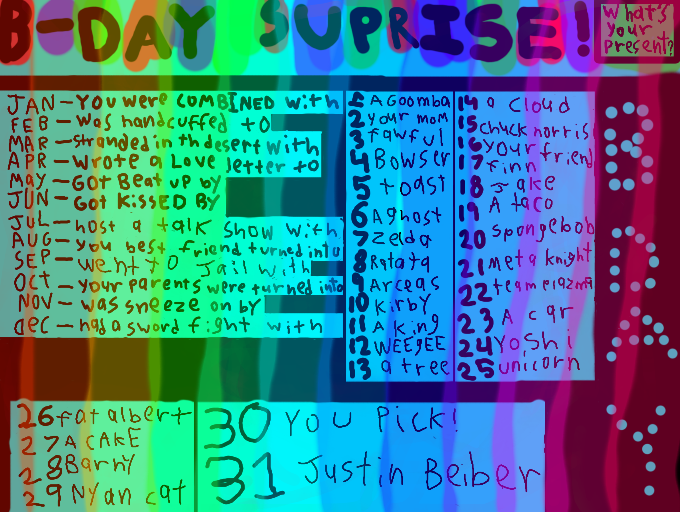 B-DAY SUPRISE!
What's
your
present?
JAN-YOU were COMBINED with
FEB - was handcuffed to
MAR - stranded in th desert with
APR - wrote a Love letter to
MAY - GOT BEAT UP by
JUN - GOT KISSED BY
JUL - host a talk show with
AUG - you best friend turned into
SEP - went to Jail with
OCT - your parents were turned into
NOV - was sneeze on by
dec - had a sword fight with
1 A Goomba
2 your mom
3 fawful
4 Bowser
5 toast
6 A ghost
7 Zelda
8 Ratata
9 Arceas
10 Kirby
11 A king
12 WEEGEE
13 a tree
14 a cloud
15 chuck norris
16 your friend
17 finn
18 Jake
19 A taco
20 spongebob
21 meta knight
22 team
23 A car
24 Yoshi
25 unicorn
26 fat albert
27 A CAKE
28 Barny
29 NYan cat
30 You Pick!
31 Justin Beiber
B
DAY